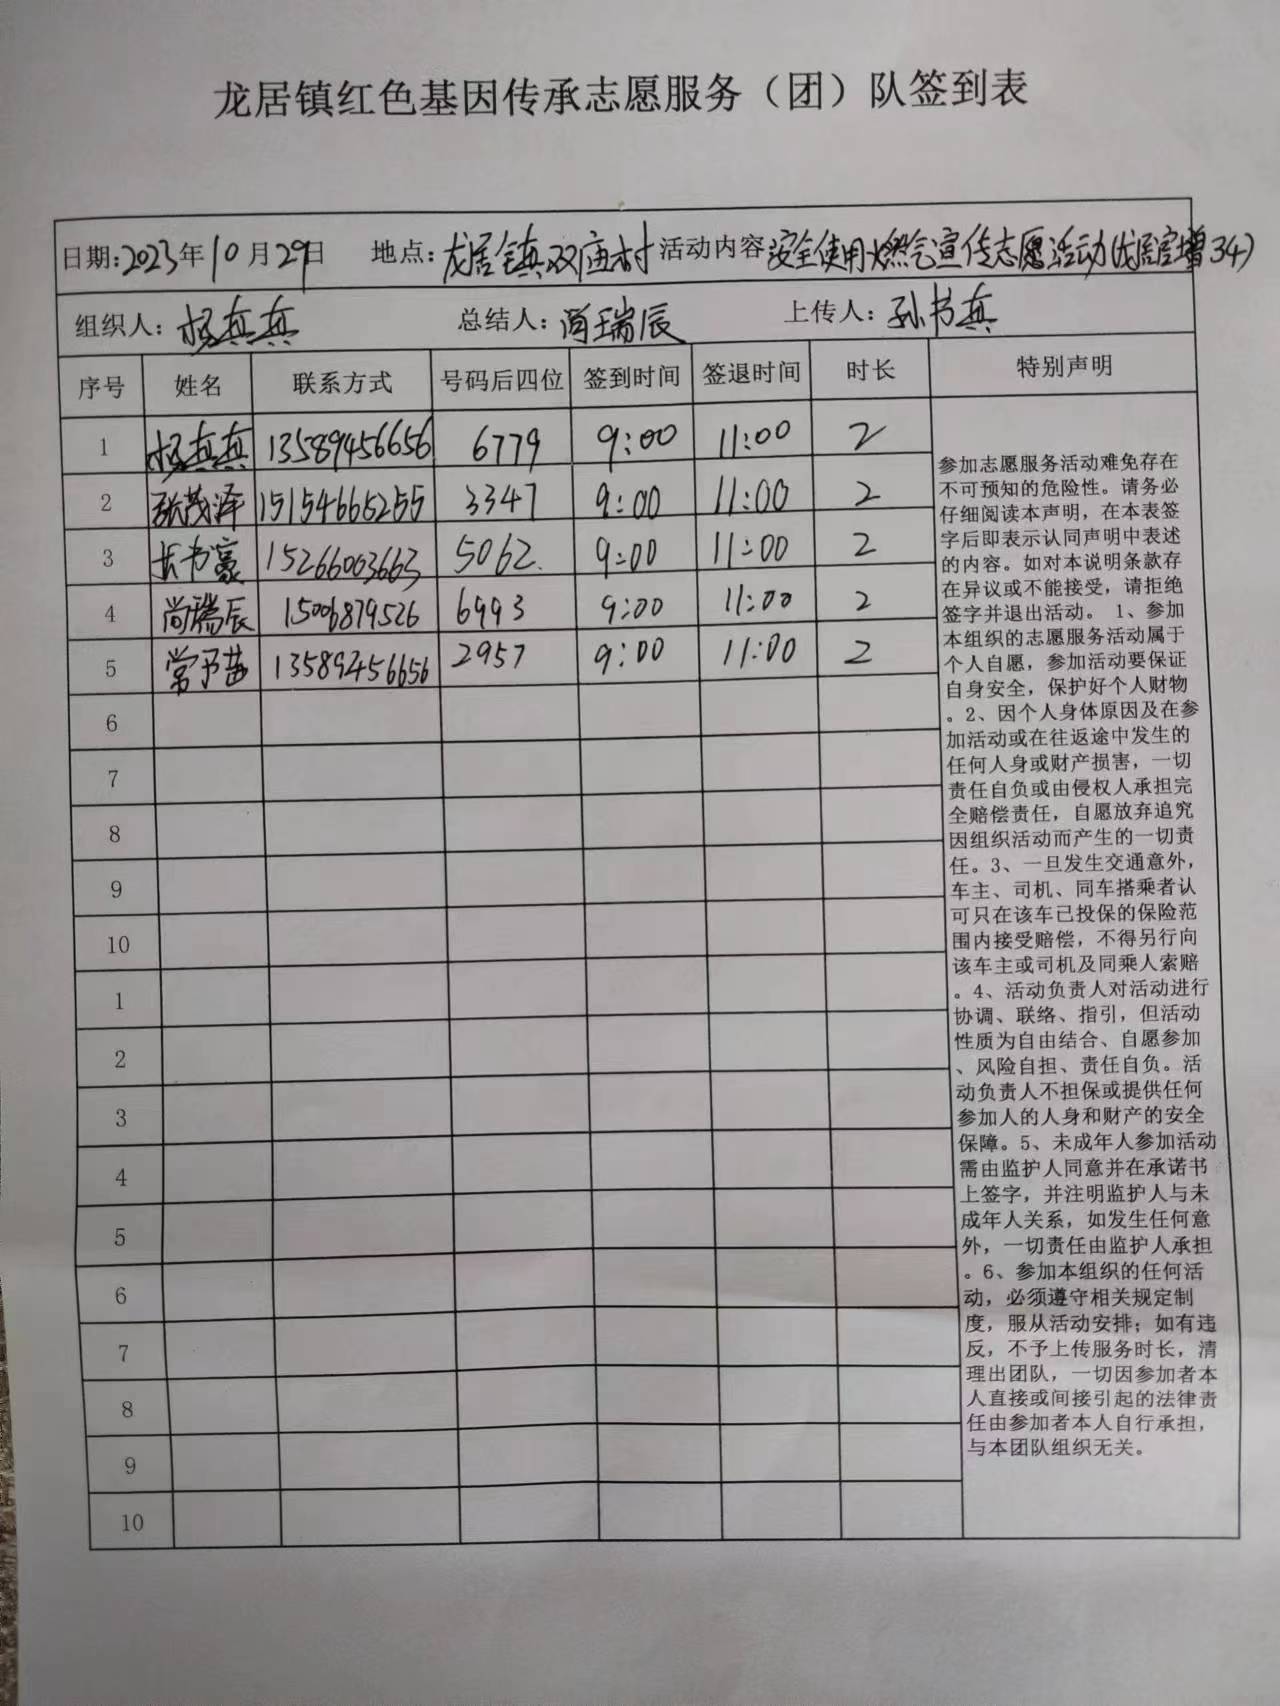 龙居镇红色基因传承志愿服务（团）队签到表
日期:2023年10月29日 地点:龙居镇双庙村 活动内容:安全使用燃气宣传志愿活动(龙居官增34)
组织人:杨真真 总结人:尚瑞辰 上传人:孙书真
序号 姓名 联系方式 号码后四位 签到时间 签退时间 时长 特别声明
1 杨真真 13589456656 6779 9:00 11:00 2
2 张茂泽 15154665255 3347 9:00 11:00 2
3 书豪 15266003663 5062. 9:00 11:00 2
4 尚瑞辰 15006879526 6993 9:00 11:00 2
5 常予苗 135894456656 2957 9:00 11:00 2
6
7
8
9
10
1
2
3
4
5
6
7
8
9
10
参加志愿服务活动难免存在
不可预知的危险性。请务必
仔细阅读本声明，在本表签
字后即表示认同声明中表述
的内容。如对本说明条款存
在异议或不能接受，请拒绝
签字并退出活动。 1、参加
本组织的志愿服务活动属于
个人自愿，参加活动要保证
自身安全，保护好个人财物
。2、因个人身体原因及在参
加活动或在往返途中发生的
任何人身或财产损害，一切
责任自负或由侵权人承担完
全赔偿责任，自愿放弃追究
因组织活动而产生的一切责
任。3、一旦发生交通意外，
车主、司机、同车搭乘者认
可只在该车已投保的保险范
围内接受赔偿，不得另行向
该车主或司机及同乘人索赔
。4、活动负责人对活动进行
协调、联络、指引，但活动
性质为自由结合、自愿参加
、风险自担、责任自负。活
动负责人不担保或提供任何
参加人的人身和财产的安全
保障。5、未成年人参加活动
需由监护人同意并在承诺书
上签字，并注明监护人与未
成年人关系，如发生任何意
外，一切责任由监护人承担
。6、参加本组织的任何活
动，必须遵守相关规定制
度，服从活动安排；如有违
反，不予上传服务时长，清
理出团队，一切因参加者本
人直接或间接引起的法律责
任由参加者本人自行承担，
与本团队组织无关。